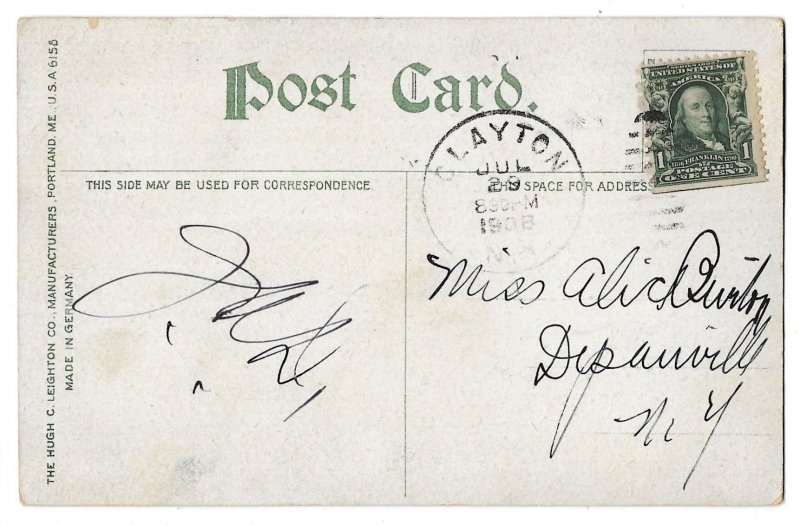 Post Card.
THIS SIDE MAY BE USED FOR CORRESPONDENCE.
THE SPACE FOR ADDRESS
THE HUGH C. LEIGHTON CO., MANUFACTURERS, PORTLAND, ME., U.S.A 6158
MADE IN GERMANY.
CLAYTON
JUL
29
830PM
1908
N.Y.
SERIES 1902
UNITED STATES OF
AMERICA
1706 FRANKLIN 1790
1 POSTAGE 1
ONE CENT
Miss Alice Burton
Depauville
N Y